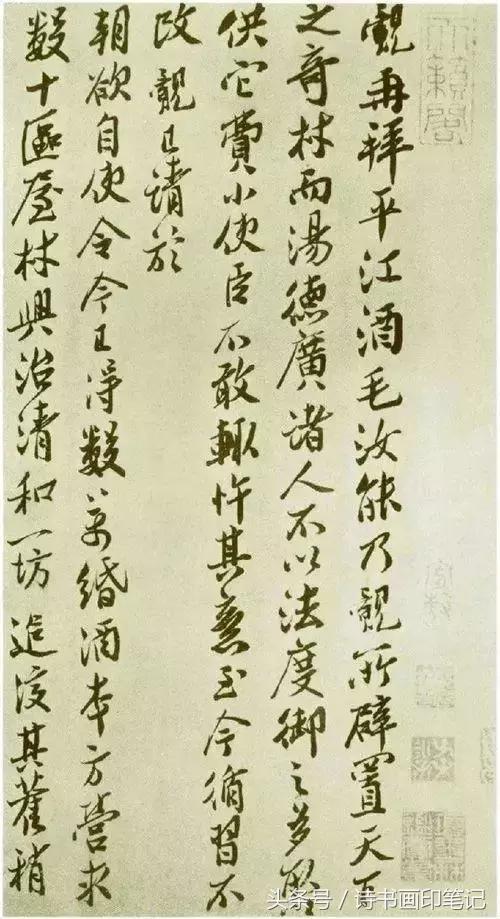 天籟閣
覿再拜平江酒毛汝能乃覿所辟置天下
之奇材而湯德廣諸人不以法度御之多釀
供它費小使臣不敢輒忤其意至今循習不
改覿已請於
朝欲自使令今已得數万緡酒本方營求
數十區屋材興治清和一坊追復其舊稍
头条号 / 诗书画印笔记